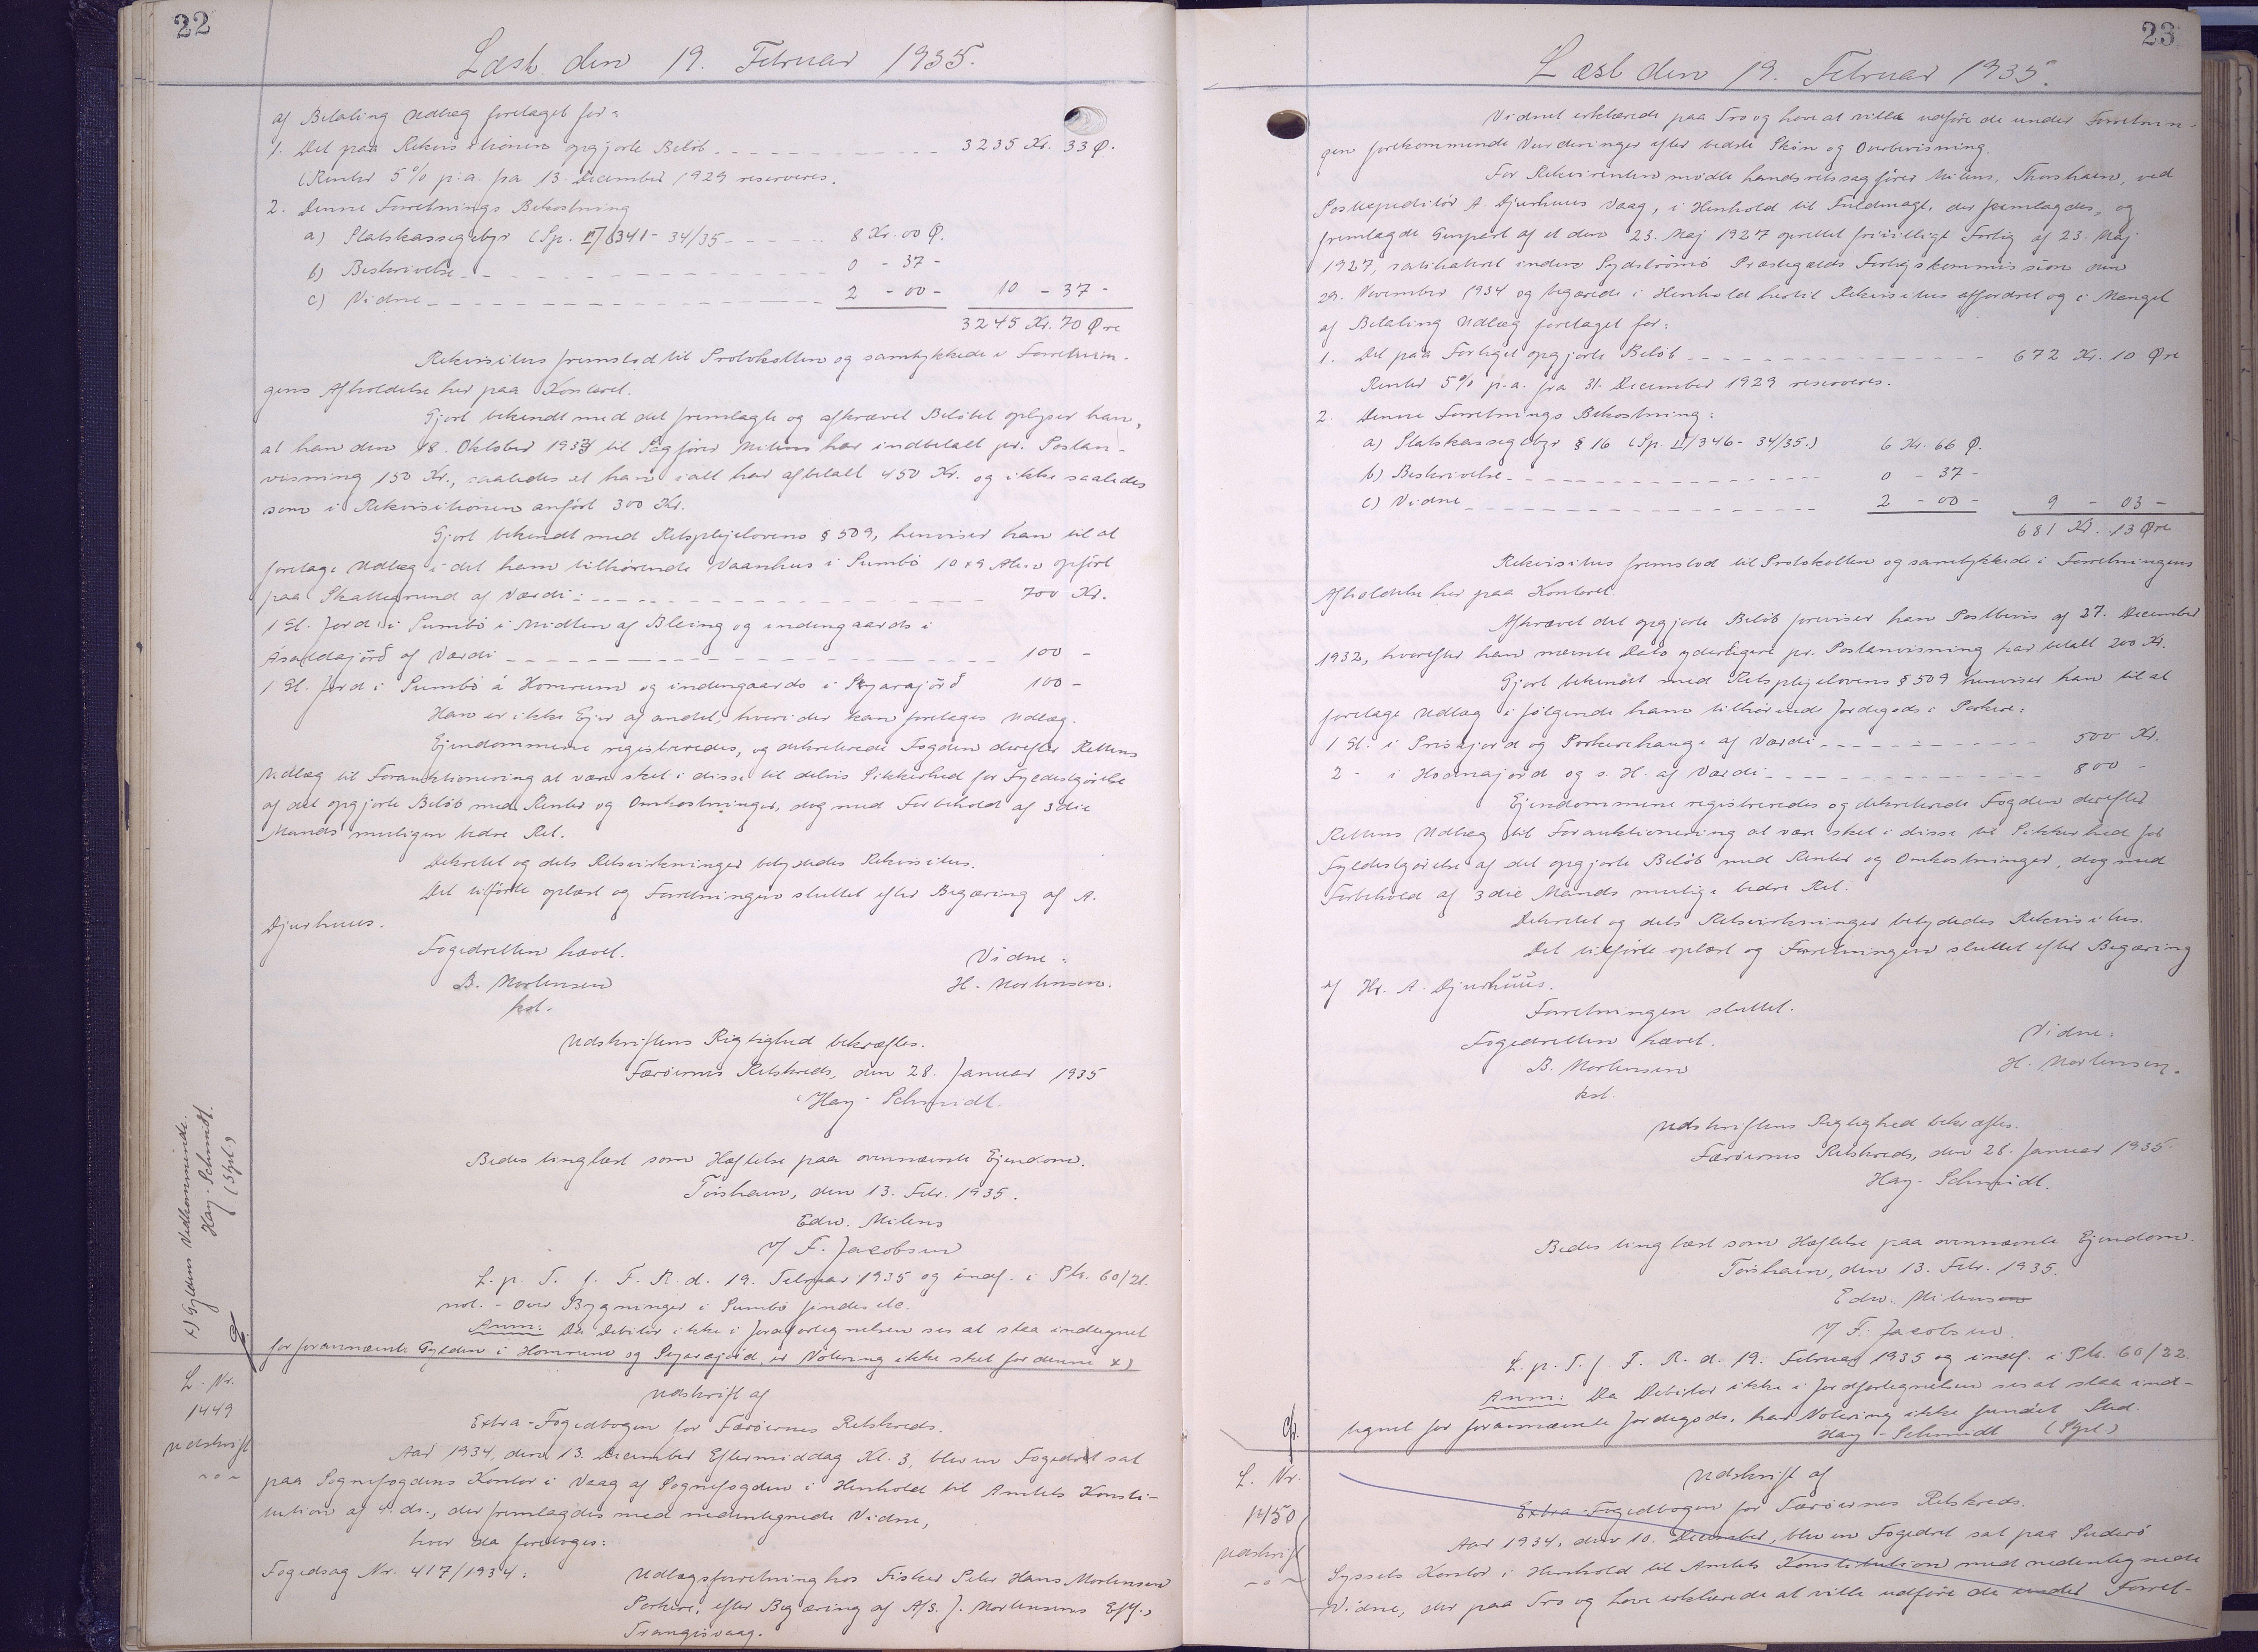 22
Læst den 19. Februar 1935.
af Betaling Udlæg foretaget for:
1. Det paa Rekvisitionen opgjorte Beløb 3235 Kr. 33 Ø.
(Renter 5% p.a. fra 13. December 1929 reserveres.
2. Denne Forretnings Bekostning
a) Statskassegebyr (Sp. II/6341-34/35 8 Kr. 00 Ø.
b) Beskrivelse 0 - 37 -
c) Vidne 2 - 00 - 10 - 37 -
3245 Kr. 70 Øre
Rekvisitus fremstod til Protokollen og samtykkede i Forretnin-
gens Afholdelse her paa Kontoret.
Gjort bekendt med det fremlagte og afkrævet Beløbet oplyser han,
at han den 18. Oktober 1934 til Sagfører Mitens har indbetalt pr. Postan-
visning 150 Kr., saaledes at han ialt har afbetalt 450 Kr. og ikke saaledes
som i Rekvisitionen anført 300 Kr.
Gjort bekendt med Retsplejelovens § 509, henviser han til at
foretage Udlæg i det ham tilhørende Vaanhus i Sumbø 10 x 9 Alen opført
paa Skattegrund af Værdi: 700 Kr.
1 Gl. Jord i Sumbø i Midten af Bleing og indengaards i
Ásaldajørð af Værdi 100 -
1 Gl. Jord i Sumbø á Homrum og indengaards i Skyarajørð 100 -
Han er ikke Ejer af andet, hvori der kan foretages Udlæg.
Ejendommene registreredes, og dekreterede Fogden derefter Rettens
Udlæg til Forauktionering at være sket i disse til delvis Sikkerhed for Fyldestgørelse
af det opgjorte Beløb med Renter og Omkostninger, dog med Forbehold af 3die
Mands muligen bedre Ret.
Dekretet og dets Retsvirkninger betydedes Rekvisitus.
Det tilførte oplæst og Forretningen sluttet efter Begæring af A.
Djurhuus.
Fogedretten hævet. Vidne:
B. Mortensen H. Mortensen.
kst.
Udskriftens Rigtighed bekræftes.
Færøernes Retskreds, den 28. Januar 1935
Hay-Schmidt.
Bedes tinglæst som Hæftelse paa ovennævnte Ejendom.
Tórshavn, den 13. Febr. 1935.
Edw. Mitens
v/ F. Jacobsen
L. p. T. f. F. R. d. 19. Februar 1935 og indf. i Ptk. 60/21.
not. - Over Bygninger i Sumbø findes ctc.
Anm: Da Debitor ikke i Jordfortegnelsen ses at staa indtegnet
for forannævnte Gylden i Homrum og Skyarajørð, er Notering ikke sket for denne x)
x) Gyldens Vedkommende.
Hay-Schmidt.
(Spl.)
L. Nr.
1449
Udskrift
Udskrift af
Extra-Fogedbogen for Færøernes Retskreds.
Aar 1934, den 13. December Eftermiddag Kl. 3, blev en Fogedret sat
paa Sognefogdens Kontor i Vaag af Sognefogden i Henhold til Amtets Konsti-
tution af 4. ds., der fremlagdes med nedentegnede Vidne,
hvor da foretoges:
Fogedsag Nr. 417/1934: Udlægsforretning hos Fisker Peter Hans Mortensen
Porkere, efter Begæring af A/S. J. Mortensens Eftf.,
Trangisvaag.
23
Læst den 19. Februar 1935.
Vidnet erklærede paa Tro og Love at ville udføre de under Forretnin-
gen forekommende Vurderinger efter bedste Skøn og Overbevisning.
For Rekvirenten mødte Landsretssagfører Mitens, Thorshavn, ved
Postexpeditør A. Djurhuus Vaag, i Henhold til Fuldmagt, der fremlagdes, og
fremlagde Genpart af et den 23. Maj 1927 oprettet frivilligt Forlig af 23. Maj
1927, ratihaberet indenv Sydstrømø Præstegælds Forligskommission den
29. November 1934 og begærede i Henhold hertil Rekvisitus affordret og i Mangel
af Betaling Udlæg foretaget for:
1. Det paa Forliget opgjorte Beløb 672 Kr. 10 Øre
Renter 5% p.a. fra 31. December 1929 reserveres.
2. Denne Forretnings Bekostning:
a) Statskassegebyr § 16 (Sp. II/346-34/35.) 6 Kr. 66 Ø.
b) Beskrivelse 0 - 37 -
c) Vidne 2 - 00 - 9 - 03 -
681 Kr. 13 Øre
Rekvisitus fremstod til Protokollen og samtykkede i Forretningens
Afholdelse her paa Kontoret.
Afkrævet det opgjorte Beløb foreviser han Postbevis af 27. December
1932, hvorefter han nævnte Dato yderligere pr. Postanvisning har betalt 200 Kr.
Gjort bekendt med Retsplejelovens § 509 henviser han til at
foretage Udlæg i følgende ham tilhørende Jordegods i Porkere:
1 Gl. i Prisajord og Porkerehauge af Værdi 500 Kr.
2 - i Hoomajord og s. H. af Værdi 800 -
Ejendommene registreredes og dekreterede Fogden derefter
Rettens Udlæg til Forauktionering at være sket i disse til Sikkerhed for
Fyldestgørelse af det opgjorte Beløb med Renter og Omkostninger, dog med
Forbehold af 3die Mands mulige bedre Ret.
Dekretet og dets Retsvirkninger betydedes Rekvisitus.
Det tilførte oplæst og Forretningen sluttet efter Begæring
af Hr. A. Djurhuus.
Forretningen sluttet.
Fogedretten hævet. Vidne:
B. Mortensen H. Mortensen.
kst.
Udskriftens Rigtighed bekræftes.
Færøernes Retskreds, den 28. Januar 1935
Hay-Schmidt.
Bedes tinglæst som Hæftelse paa ovennævnte Ejendom.
Tórshavn, den 13. Febr. 1935.
Edw. Mitens
v/ F. Jacobsen.
L. p. T. f. F. R. d. 19. Februar 1935 og indf. i Ptk. 60/22.
Anm: Da Debitor ikke i Jordfortegnelsen ses at staa ind-
tegnet for forannævnte Jordegods, har Notering ikke fundet Sted.
Hay-Schmidt (Spl.)
L. Nr.
1450
Udskrift
Udskrift af
Extra-Fogedbogen for Færøernes Retskreds.
Aar 1934, den 10. December, blev en Fogedret sat paa Suderø
Syssels Kontor i Henhold til Amtets Konstitution med nedentegnede
Vidne, der paa Tro og Love erklærede at ville udføre de under Forret-